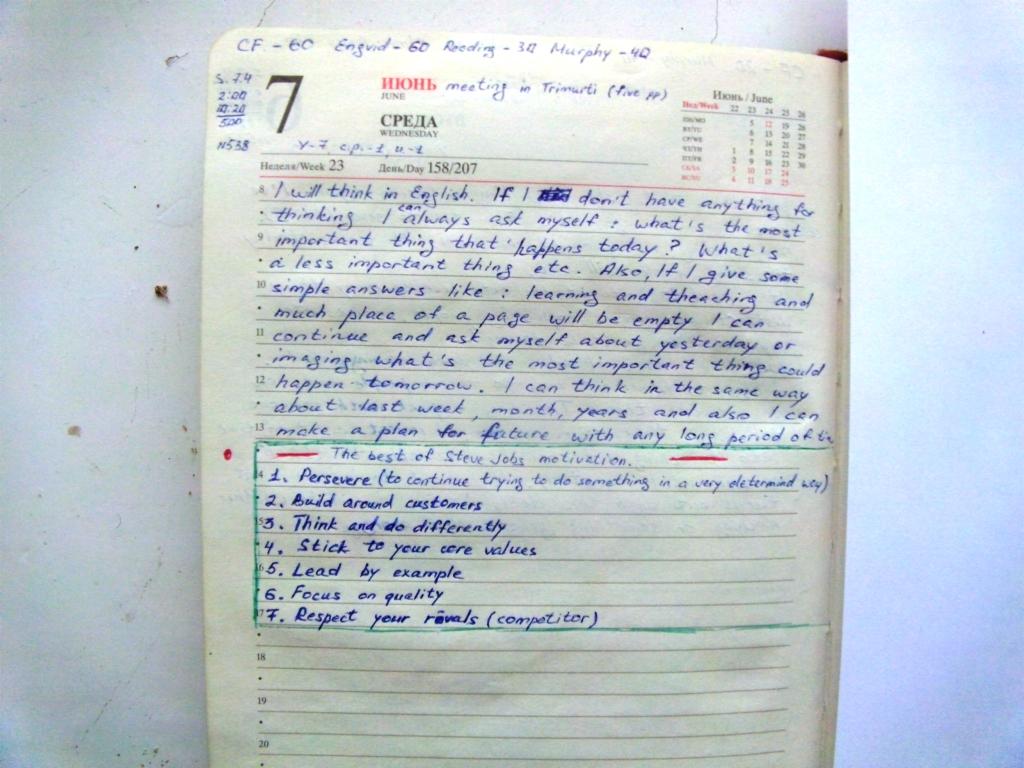 CF. - 60 Engvid - 60 Reading - 30 Murphy - 40
S. 7.4
2:00
500
N538
7
ИЮНЬ meeting in Trimurti (five pp)
JUNE
СРЕДА
WEDNESDAY
y-7, c.p.-1, u.-1
Неделя/Week 23 День/Day 158/207
Июнь / June
Нед/Week 22 23 24 25 26
ПН/MO 5 12 19 26
ВТ/TU 6 13 20 27
СР/WE 7 14 21 28
ЧТ/TH 1 8 15 22 29
ПТ/FR 2 9 16 23 30
СБ/SA 3 10 17 24
ВС/SU 4 11 18 25
8 I will think in English. If I don't have anything for
thinking I can always ask myself : what's the most
9 important thing that happens today? What's
a less important thing etc. Also, If I give some
10 simple answers like : learning and theaching and
much place of a page will be empty I can
11 continue and ask myself about yesterday or
imaging what's the most important thing could
12 happen tomorrow. I can think in the same way
about last week, month, years and also I can
13 make a plan for future with any long period of
The best of Steve Jobs motivation.
14 1. Persevere (to continue trying to do something in a very determind way)
2. Build around customers
15 3. Think and do differently
4. Stick to your core values
16 5. Lead by example
6. Focus on quality
17 7. Respect your rivals (competitor)
18
19
20